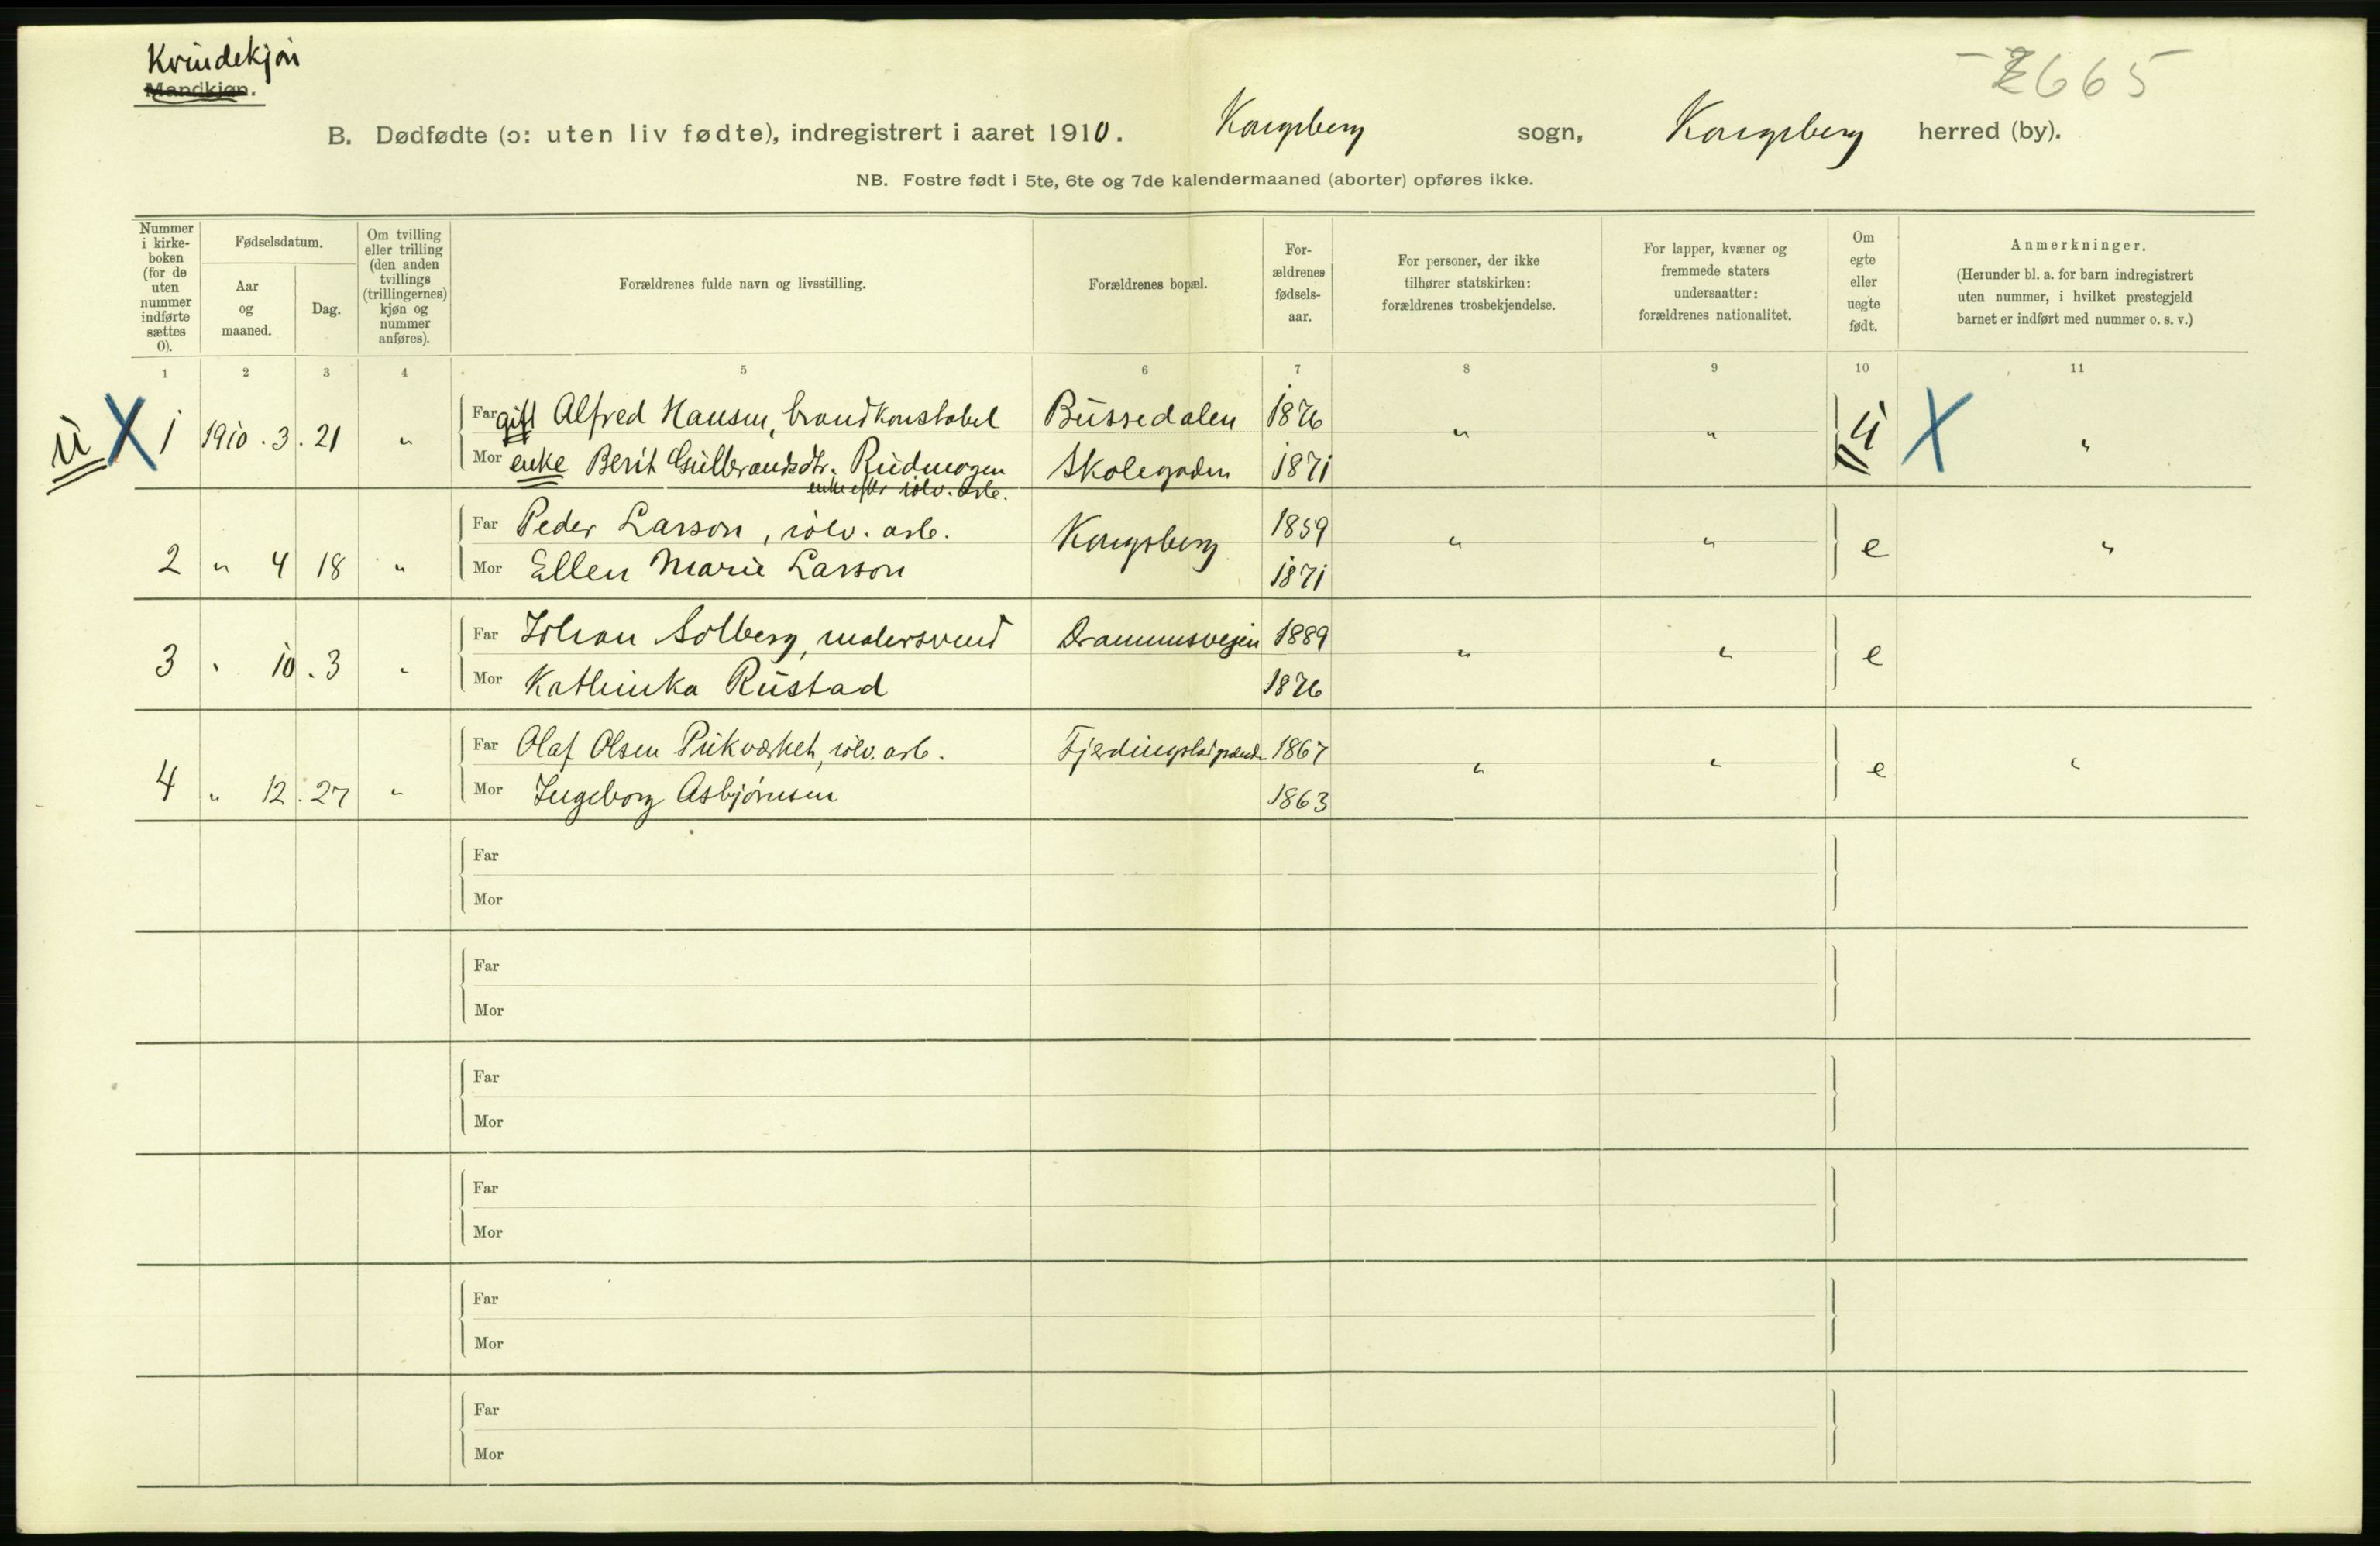 Kvindekjøn
Mandkjøn.
665
B. Dødfødte (ɔ: uten liv fødte), indregistrert i aaret 1910. Kongsberg sogn, Kongsberg herred (by).
NB. Fostre født i 5te, 6te og 7de kalendermaaned (aborter) opføres ikke.
Nummer i kirke-boken (for de uten nummer indførte sættes 0).
Fødselsdatum.
Aar og maaned.
Dag.
Om tvilling eller trilling (den anden tvillings (trillingernes) kjøn og nummer anføres).
Forældrenes fulde navn og livsstilling.
Forældrenes bopæl.
For-ældrenes fødsels-aar.
For personer, der ikke tilhører statskirken: forældrenes trosbekjendelse.
For lapper, kvæner og fremmede staters undersaatter: forældrenes nationalitet.
Om egte eller uegte født.
Anmerkninger.
(Herunder bl. a. for barn indregistrert uten nummer, i hvilket prestegjeld barnet er indført med nummer o. s. v.)
1 2 3 4 5 6 7 8 9 10 11
ü X 1 1910. 3. 21 " Far gift Alfred Hansen, brandkonstabel Bussedalen 1876 " " u X "
Mor enke Berit Gulbrandsdtr. Rudmogen Skolegaden 1871
enke efter sølv. arb.
Far Peder Larson, sølv. arb. Kongsberg 1859
2 " 4 18 " Mor Ellen Marie Larson 1871 " " e "
Far Johan Solberg, malersvend Drammensvejen 1889
3 " 10. 3 " Mor Kathinka Rustad 1876 " " e
Far Olaf Olsen Pukværket, sølv. arb. 1867
4 " 12. 27 " Mor Ingeborg Asbjørnsen 1863 " " e "
Far
Mor
Far
Mor
Far
Mor
Far
Mor
Far
Mor
Far
Mor